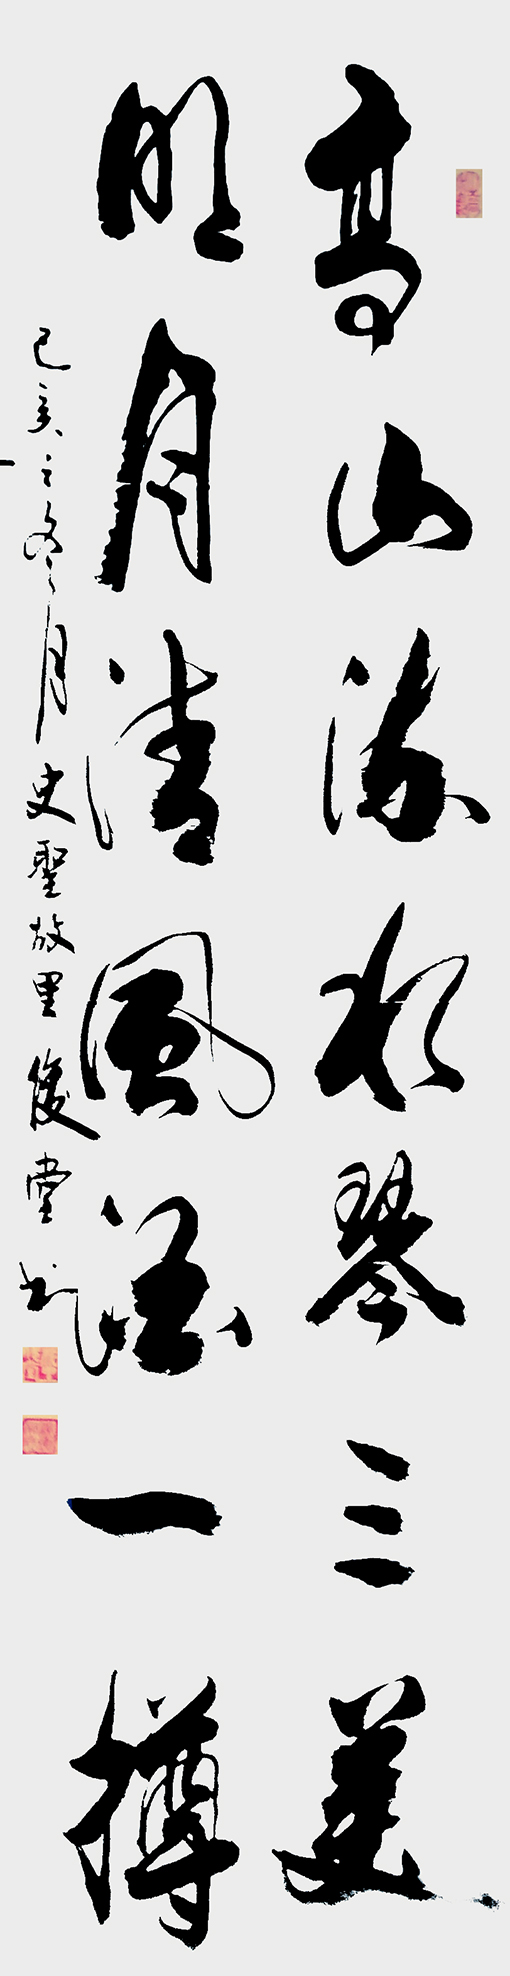 高山流水琴三弄
明月清風酒一樽
己亥之冬月史聖故里復堂书